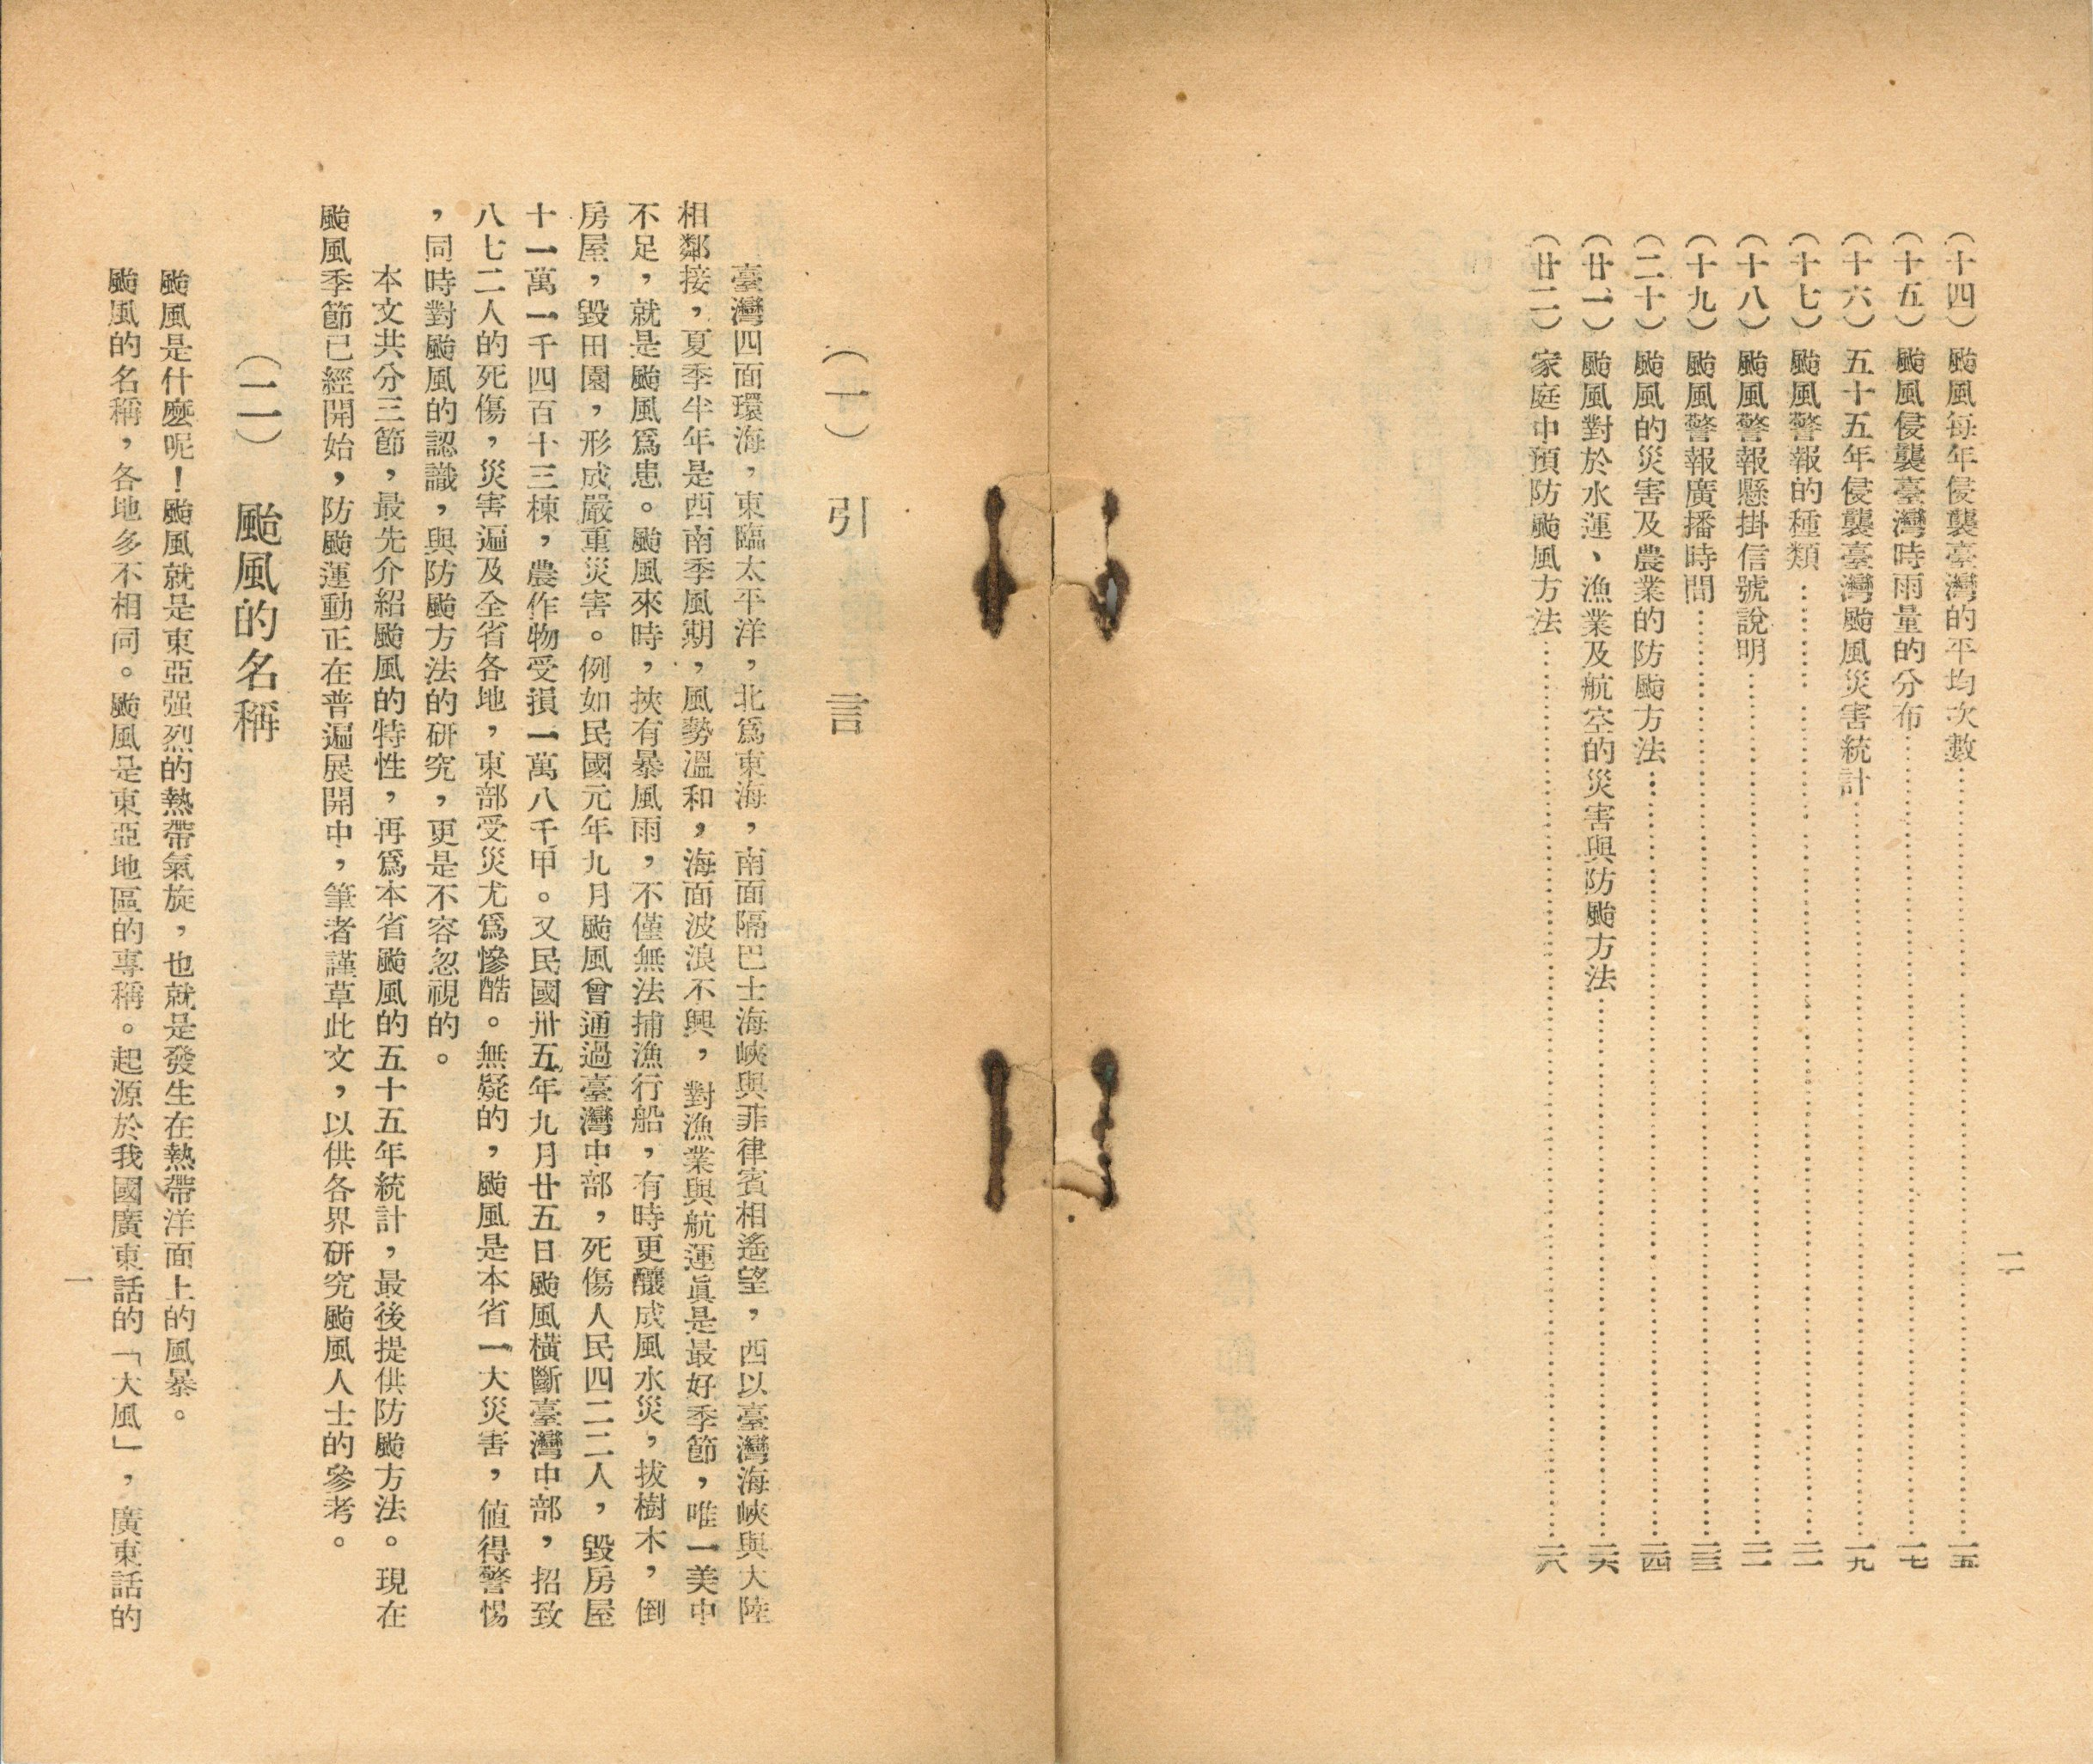 二
（十四）颱風每年侵襲臺灣的平均次數……一五
（十五）颱風侵襲臺灣時雨量的分布……一七
（十六）五十五年侵襲臺灣颱風災害統計……一九
（十七）颱風警報的種類……二一
（十八）颱風警報懸掛信號說明……二二
（十九）颱風警報廣播時間……二三
（二十）颱風的災害及農業的防颱方法……二四
（廿一）颱風對於水運、漁業及航空的災害與防颱方法……二六
（廿二）家庭中預防颱風方法……二八
（一）　引　言
臺灣四面環海，東臨太平洋，北爲東海，南面隔巴士海峽與菲律賓相遙望，西以臺灣海峽與大陸
相鄰接，夏季半年是西南季風期，風勢溫和，海面波浪不興，對漁業與航運眞是最好季節，唯一美中
不足，就是颱風爲患。颱風來時，挾有暴風雨，不僅無法捕漁行船，有時更釀成風水災，拔樹木，倒
房屋，毀田園，形成嚴重災害。例如民國元年九月颱風曾通過臺灣中部，死傷人民四二二人，毀房屋
十一萬一千四百十三棟，農作物受損一萬八千甲。又民國卅五年九月廿五日颱風橫斷臺灣中部，招致
八七二人的死傷，災害遍及全省各地，東部受災尤爲慘酷。無疑的，颱風是本省一大災害，值得警惕
，同時對颱風的認識，與防颱方法的研究，更是不容忽視的。
本文共分三節，最先介紹颱風的特性，再爲本省颱風的五十五年統計，最後提供防颱方法。現在
颱風季節已經開始，防颱運動正在普遍展開中，筆者謹草此文，以供各界研究颱風人士的參考。
（二）　颱風的名稱
颱風是什麼呢！颱風就是東亞强烈的熱帶氣旋，也就是發生在熱帶洋面上的風暴。
颱風的名稱，各地多不相同。颱風是東亞地區的專稱。起源於我國廣東話的「大風」，廣東話的
一